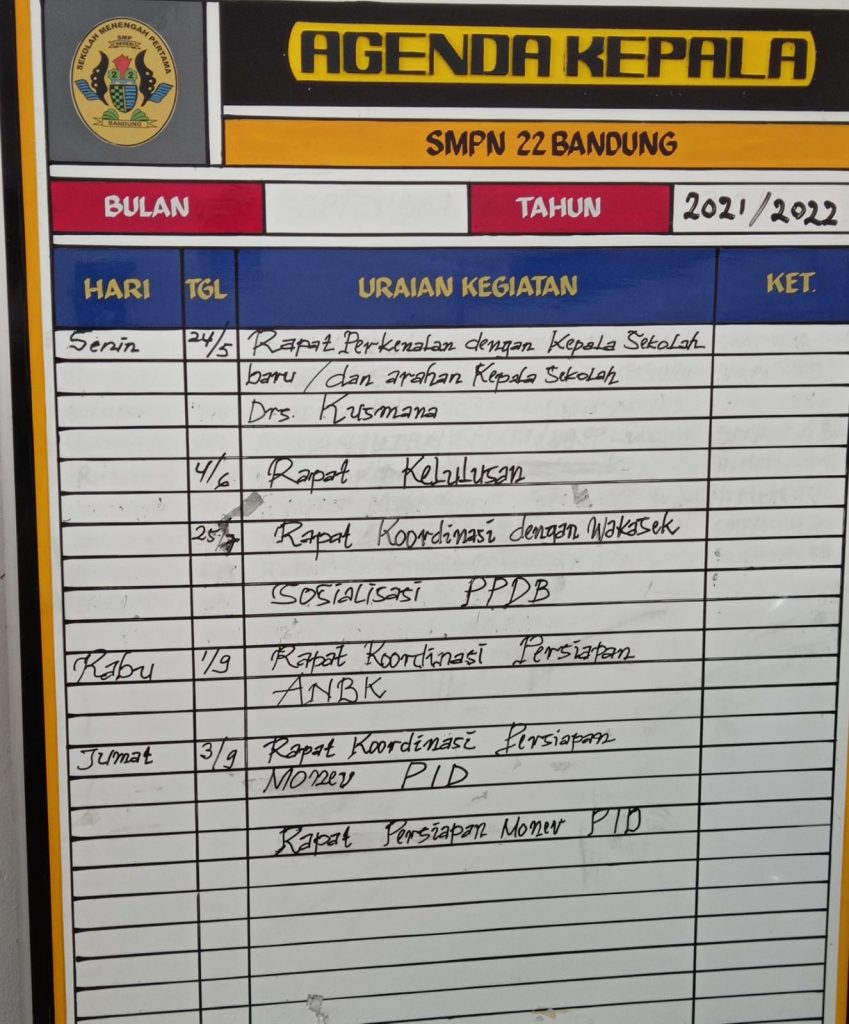 SEKOLAH MENENGAH PERTAMA
SMP
NEGERI
22
BANDUNG
AGENDA KEPALA
SMPN 22 BANDUNG
BULAN TAHUN 2021/2022
HARI TGL URAIAN KEGIATAN KET.
Senin 24/5 Rapat Perkenalan dengan Kepala Sekolah
baru / dan arahan Kepala Sekolah
Drs. Kusmana
4/6 Rapat Kelulusan
Rapat Koordinasi dengan Wakasek
Sosialisasi PPDB
Rabu 1/9 Rapat Koordinasi Persiapan
ANBK
Jumat 3/9 Rapat Koordinasi Persiapan
Monev PID
Rapat Persiapan Monev PID